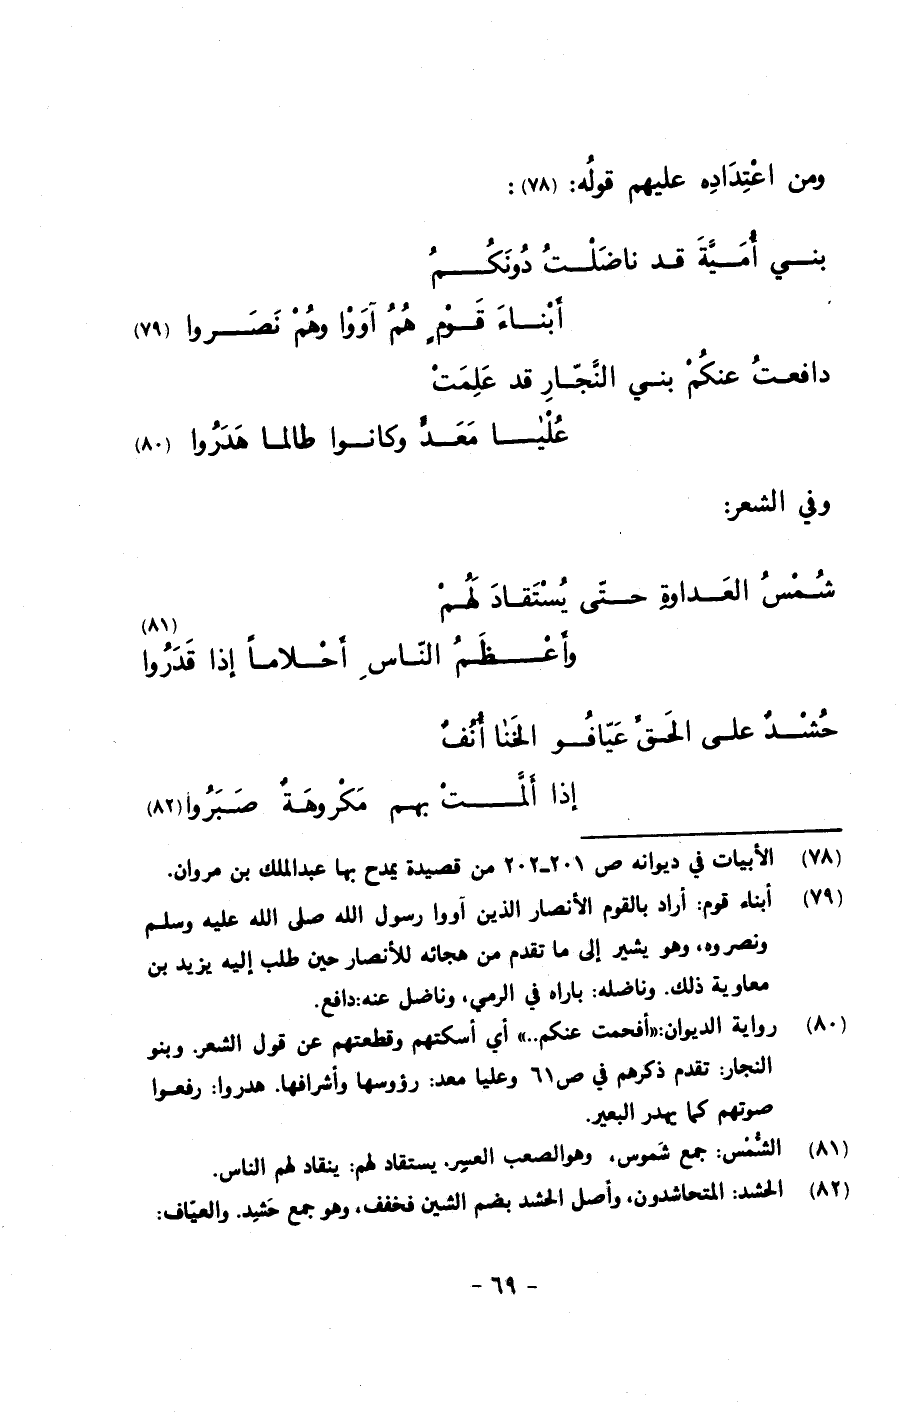 ومن اعْتِدَادِه عليهم قولُه: (٧٨) :
بنـــي أُمَـــيَّةَ قـد ناضَلْـــتُ دُونَكُـــــمُ
أَبْنـــاءَ قَـــوْمٍ هُمُ آوَوْا وهُمْ نَصَــــروا (٧٩)
دافعـتُ عنكُمْ بنـي النَّجّـارِ قد عَلِمَتْ
عُلْيٰـــــا مَعَــدٍّ وكانــوا طالمـا هَدَرُوا (٨٠)
وفي الشعر:
شُـمْسُ العَـداوةِ حـتّى يُسْتَقـادَ لَهُـمْ
(٨١)
وأَعْـــــظَمُ النّـاسِ أَحْـــلاماً إذا قَدَرُوا
حُشْــدٌ علـى الحَـقِّ عَيّافُــو الخَنٰا أُنُفٌ
إذا أَلَمَّـــــتْ بهـم مَكْروهَـةٌ صَـبَرُوا (٨٢)
(٧٨) الأبيات في ديوانه ص ٢٠١ـ٢٠٢ من قصيدة يمدح بها عبدالملك بن مروان.
(٧٩) أبناء قوم: أراد بالقوم الأنصار الذين آووا رسول الله صلى الله عليه وسلـم
ونصروه، وهو يشير إلى ما تقدم من هجائه للأنصار حين طلب إليه يزيد بن
معاوية ذلك. وناضله: باراه في الرمي، وناضل عنه:دافع.
(٨٠) رواية الديوان:«أفحمت عنكم..» أي أسكتهم وقطعتهم عن قول الشعر. وبنو
النجار: تقدم ذكرهم في ص٦١ وعليا معد: رؤوسها وأشرافها. هدروا: رفعـوا
صوتهم كما يهدر البعير.
(٨١) الشُّمْس: جمع شَموس، وهوالصعب العسِر. يستقاد لهم: ينقاد لهم الناس.
(٨٢) الحشد: المتحاشدون، وأصل الحشد بضم الشين فخفف، وهو جمع حَشِد. والعيّاف:
- ٦٩ -